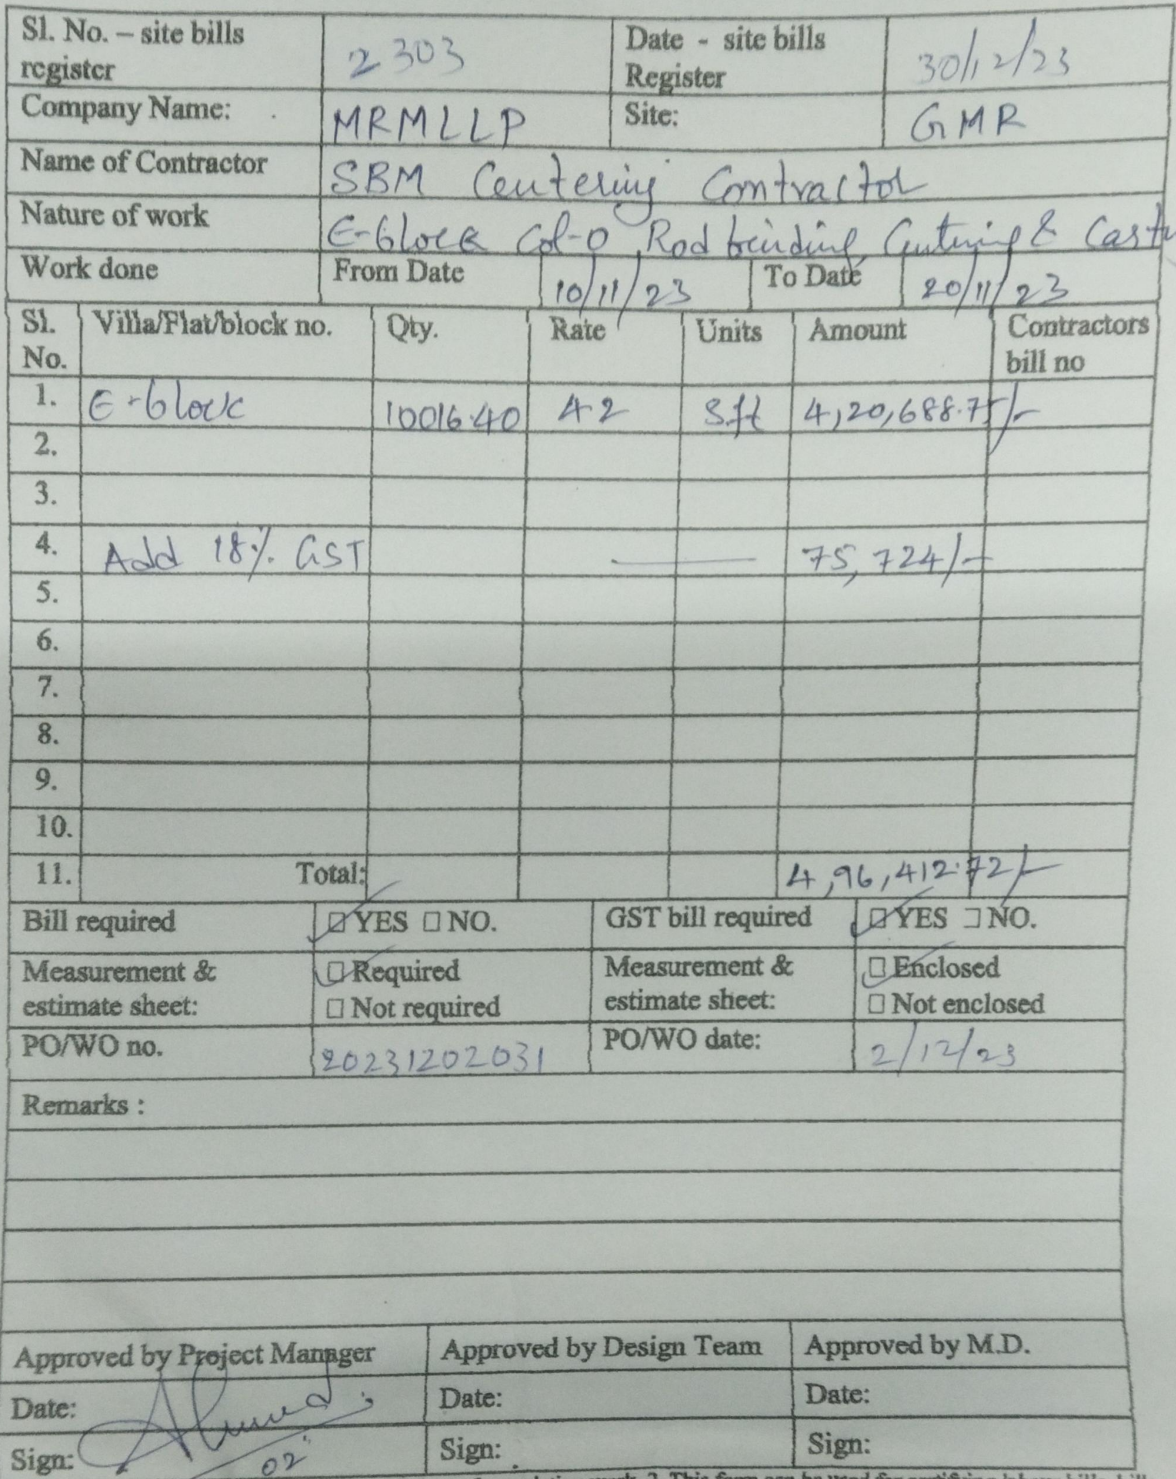 Sl. No. – site bills register 2303 Date - site bills Register 30/12/23
Company Name: MRMLLP Site: GMR
Name of Contractor SBM Centering Contractor
Nature of work E-block Col-0 Rod bending, Centering &
Work done From Date 10/11/23 To Date 20/11/23
Sl. No. Villa/Flat/block no. Qty. Rate Units Amount Contractors bill no
1. E-block 10016.40 42 Sft 4,20,688.75/-
2.
3.
4. Add 18% GST — 75,724/-
5.
6.
7.
8.
9.
10.
11. Total: 4,96,412.72/-
Bill required ☑ YES ☐ NO. GST bill required ☑ YES ☐ NO.
Measurement & estimate sheet: ☑ Required ☐ Not required Measurement & estimate sheet: ☑ Enclosed ☐ Not enclosed
PO/WO no. 20231202031 PO/WO date: 2/12/23
Remarks :
Approved by Project Manager Approved by Design Team Approved by M.D.
Date: Date: Date:
Sign: 02 Sign: Sign: